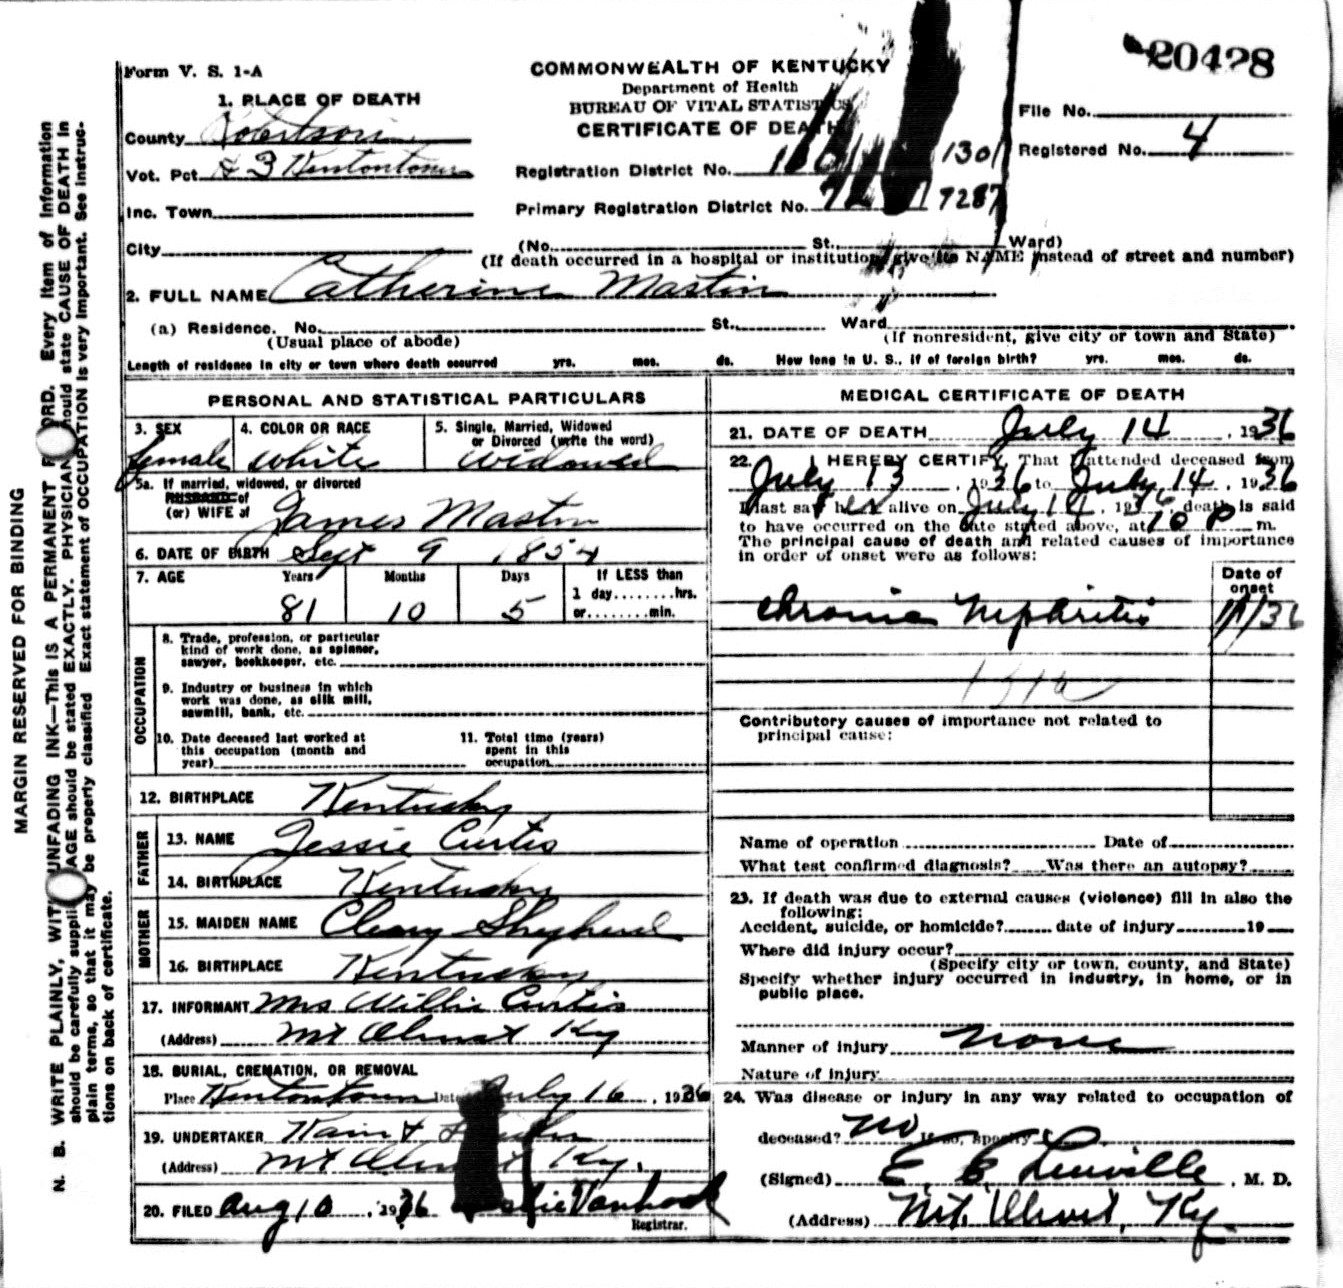 20428
Form V. S. 1-A
COMMONWEALTH OF KENTUCKY
Department of Health
BUREAU OF VITAL STATISTICS
CERTIFICATE OF DEATH
File No.
Registered No. 4
1. PLACE OF DEATH
County Robertson
Vot. Pct. # 3 Kentontown
Inc. Town
City
Registration District No. 1301
Primary Registration District No. 7287
(No. St., Ward)
(If death occurred in a hospital or institution, give its NAME instead of street and number)
2. FULL NAME Catherine Mastin
(a) Residence. No. St., Ward
(Usual place of abode) (If nonresident, give city or town and State)
Length of residence in city or town where death occurred yrs. mos. ds. How long in U. S., if of foreign birth? yrs. mos. ds.
PERSONAL AND STATISTICAL PARTICULARS
3. SEX female
4. COLOR OR RACE white
5. Single, Married, Widowed
or Divorced (write the word)
widowed
5a. If married, widowed, or divorced
HUSBAND of
(or) WIFE of James Mastin
6. DATE OF BIRTH Sept 9 1854
7. AGE Years Months Days If LESS than
81 10 5 1 day........hrs.
or........min.
OCCUPATION
8. Trade, profession, or particular
kind of work done, as spinner,
sawyer, bookkeeper, etc.
9. Industry or business in which
work was done, as silk mill,
sawmill, bank, etc.
10. Date deceased last worked at
this occupation (month and
year)
11. Total time (years)
spent in this
occupation
12. BIRTHPLACE Kentucky
FATHER
13. NAME Jessie Curtis
14. BIRTHPLACE Kentucky
MOTHER
15. MAIDEN NAME Cleary Shepherd
16. BIRTHPLACE Kentucky
17. INFORMANT Mrs Willie Curtis
(Address) Mt Olivet Ky
18. BURIAL, CREMATION, OR REMOVAL
Place Kentontown Date July 16, 1936
19. UNDERTAKER
(Address) Mt Olivet Ky.
20. FILED Aug 10, 1936 Vanhook
Registrar.
MEDICAL CERTIFICATE OF DEATH
21. DATE OF DEATH July 14, 1936
22. I HEREBY CERTIFY, That I attended deceased from
July 13, 1936 to July 14, 1936
I last saw her alive on July 14, 1936, death is said
to have occurred on the date stated above, at 10 P m.
The principal cause of death and related causes of importance
in order of onset were as follows:
Date of
onset
Chronic Nephritis 1/1/36
Contributory causes of importance not related to
principal cause:
Name of operation Date of
What test confirmed diagnosis? Was there an autopsy?
23. If death was due to external causes (violence) fill in also the
following:
Accident, suicide, or homicide? date of injury 19
Where did injury occur?
(Specify city or town, county, and State)
Specify whether injury occurred in industry, in home, or in
public place.
Manner of injury none
Nature of injury
24. Was disease or injury in any way related to occupation of
deceased? no If so, specify
(Signed) E. C. Linville, M. D.
(Address) Mt. Olivet, Ky.
MARGIN RESERVED FOR BINDING
N. B. WRITE PLAINLY, WITH UNFADING INK—THIS IS A PERMANENT RECORD. Every item of information
should be carefully supplied. AGE should be stated EXACTLY. PHYSICIANS should state CAUSE OF DEATH in
plain terms, so that it may be properly classified. Exact statement of OCCUPATION is very important. See instruc-
tions on back of certificate.